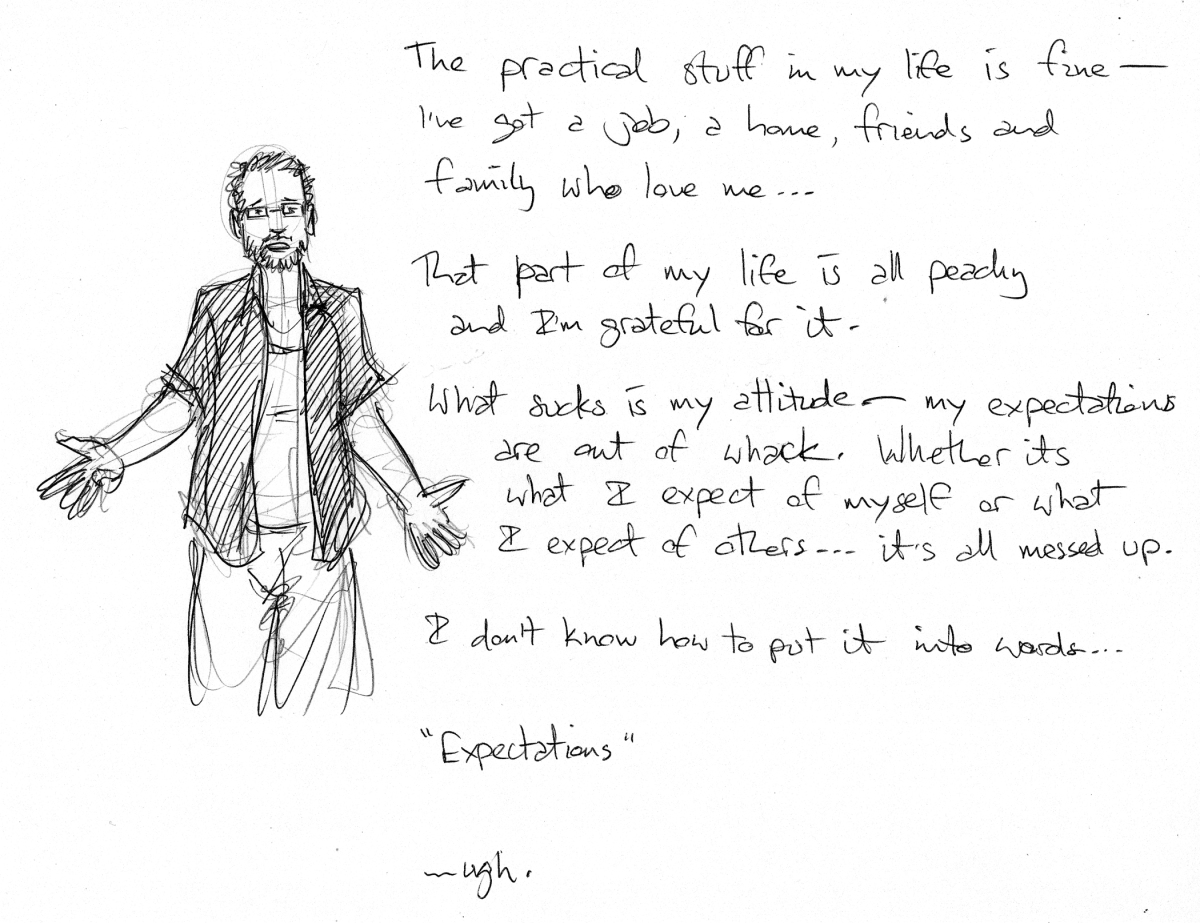 The practical stuff in my life is fine —
I've got a job, a home, friends and
family who love me...
That part of my life is all peachy
and I'm grateful for it.
What sucks is my attitude — my expectations
are out of whack. Whether its
what I expect of myself or what
I expect of others... it's all messed up.
I don't know how to put it into words...
"Expectations"
—ugh.